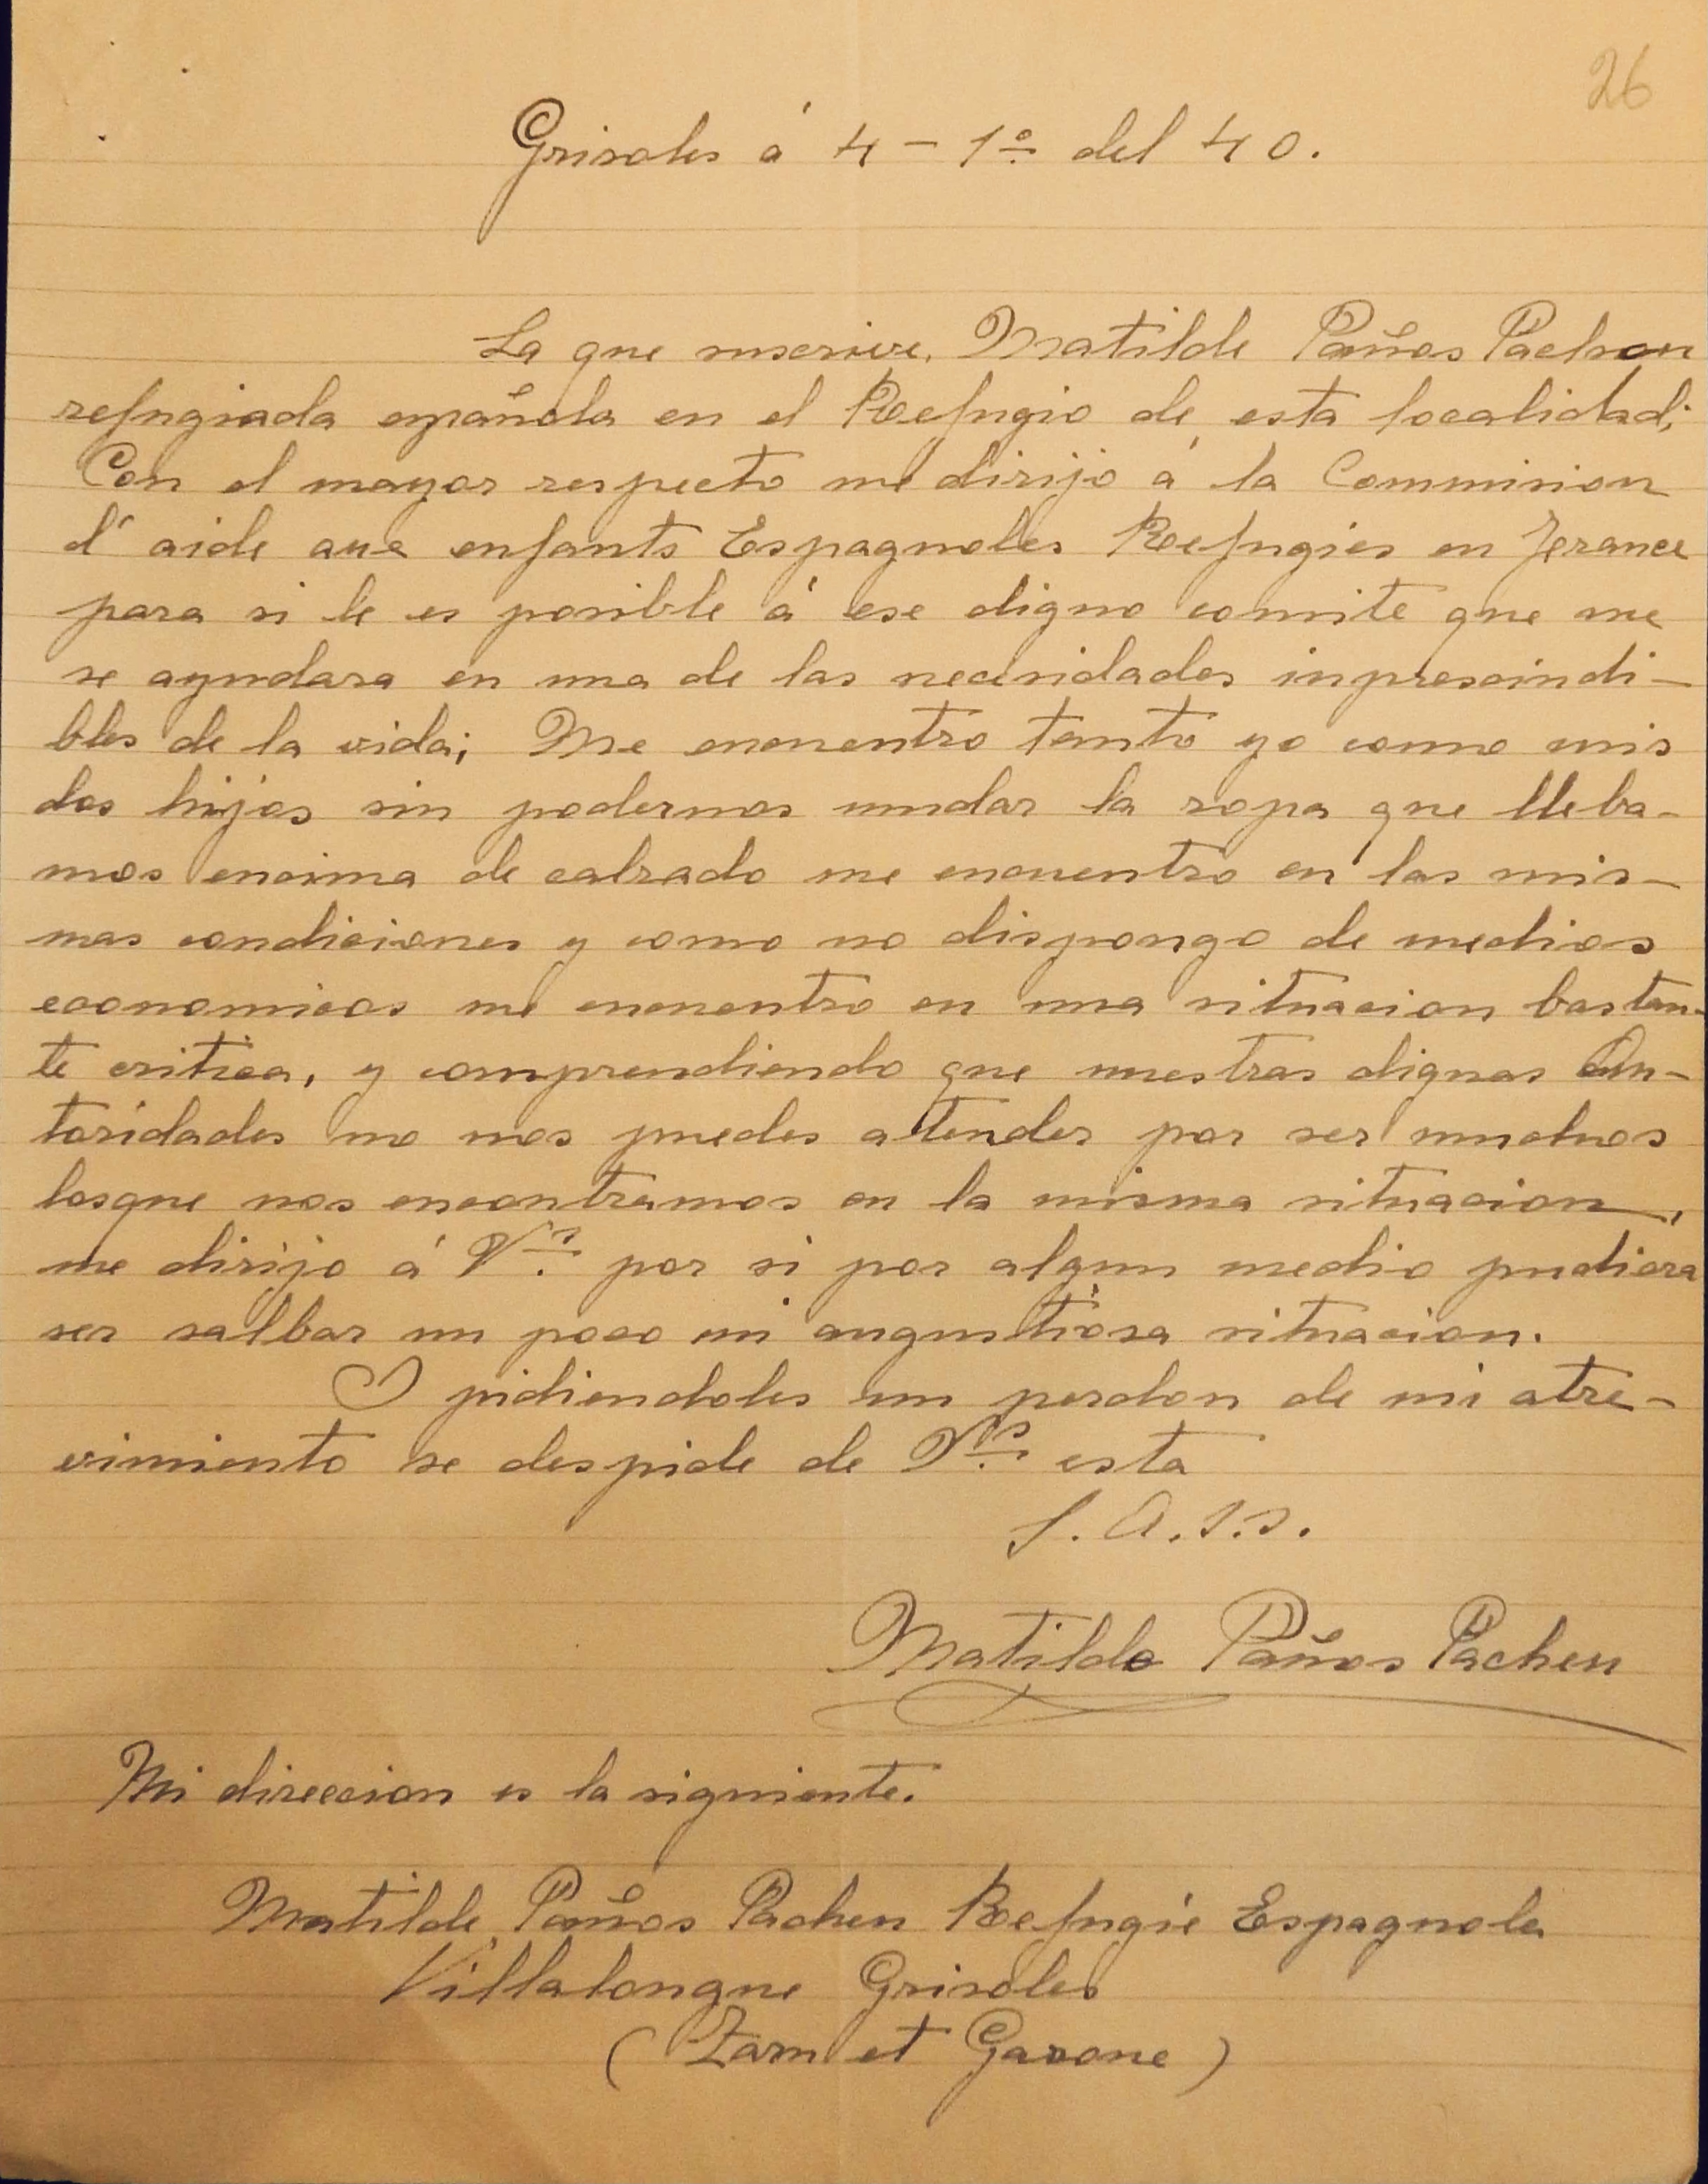 26
Grisoles á 4 - 1º del 40.
La que suscrive. Matilde Paños Pachen
refugiada española en el Refugio de esta localidad;
Con el mayor respecto me dirijo á la Commision
d' aide aux enfants Espagnoles Refugies en France
para si le es posible á ese digno comite que me
se ayudara en una de las necesidades inprescindi-
bles de la vida; Me encuentro tanto yo como mis
dos hijos sin podernos mudar la ropa que lleba-
mos encima de calzado me encuentro en las mis-
mas condiciones y como no dispongo de medios
economicos me encuentro en una situacion bastan-
te critica, y comprendiendo que nuestras dignas Au-
toridades no nos puedes atender por ser muchos
losque nos encontramos en la misma situacion,
me dirijo á Vs. por si por algun medio pudiera
ser salbar un poco mi angustiosa situacion.
Y pidiendoles un perdon de mi atre-
vimiento se despide de Vs. esta
S. A. S.S.
Matilde Paños Pachen
Mi direccion es la siguiente.
Matilde Paños Pachen Refugié Espagnoles
Villalongue Grisoles
(Tarn et Garone)